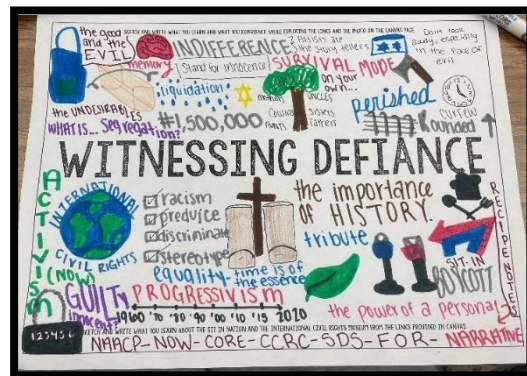 SKETCH AND WRITE WHAT YOU LEARN AND WHAT YOU EXPERIENCE WHILE EXPLORING THE LINKS AND THE PHOTO ON THE CANVAS PAGE
the good
and the
EVIL
memory
INDIFFERENCE?
Artists are
the story tellers
Don't look
away, especially
in the face of
evil
I Stand for innocence!
SURVIVAL MODE
on your
own...
liquidation
the UNDESIRABLES
WHAT IS... Segregation?
#1,500,000
mothers
UNCLES
COUSINS
Sisters
AUNTS
Fathers
perished
CURFEW
Rounded ↑
WITNESSING DEFIANCE
ACTIVISM
(NOW)
INTERNATIONAL
CIVIL RIGHTS
racism
prejudice
discriminate
stereotype
equality-time is of
the essence
the importance
OF HISTORY.
tribute
RECIPE NOTES
SIT-IN
BOYCOTT
GUILTY
innocent?
PROGRESSIVISM
1960 '70 '80 '90 '00 '10 '15 2020
the power of a personal
NARRATIVE
123456
SKETCH AND WRITE WHAT YOU LEARN ABOUT THE SIT IN NATION AND THE INTERNATIONAL CIVIL RIGHTS MUSEUM FROM THE LINKS PROVIDED IN CANVAS
NAACP-NOW-CORE-CCRC-SDS-FOR-